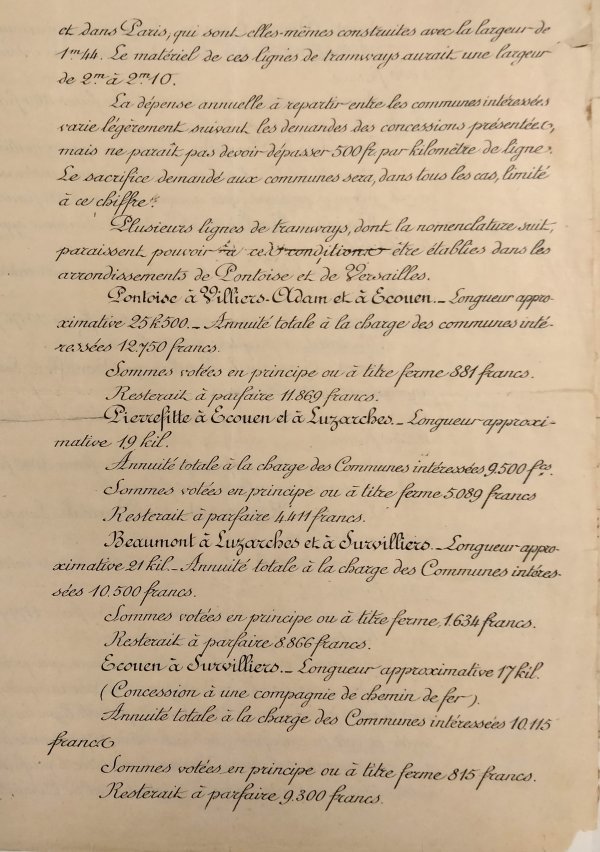 et dans Paris, qui sont elles-mêmes construites avec la largeur de
1ᵐ44. Le matériel de ces lignes de tramways aurait une largeur
de 2ᵐ à 2ᵐ10.
La dépense annuelle à repartir entre les communes intéressées
varie légèrement suivant les demandes des concessions présentées,
mais ne paraît pas devoir dépasser 500 fr. par kilomètre de ligne.
Le sacrifice demandé aux communes sera, dans tous les cas, limité
à ce chiffre.
Plusieurs lignes de tramways, dont la nomenclature suit,
paraissent pouvoir à ces conditions être établies dans les
arrondissements de Pontoise et de Versailles.
Pontoise à Villiers-Adam et à Ecouen. _ Longueur appro-
ximative 25 k 500 _ Annuité totale à la charge des communes inté-
ressées 12.750 francs.
Sommes votées en principe ou à titre ferme 881 francs.
Resterait à parfaire 11.869 francs.
Pierrefitte à Ecouen et à Luzarches. _ Longueur approxi-
mative 19 kil.
Annuité totale à la charge des Communes intéressées 9.500 fcs.
Sommes votées en principe ou à titre ferme 5.089 francs
Resterait à parfaire 4.411 francs.
Beaumont à Luzarches et à Survilliers. _ Longueur appro-
ximative 21 kil. _ Annuité totale à la charge des Communes intéres-
sées 10.500 francs.
Sommes votées en principe ou à titre ferme, 1.634 francs.
Resterait à parfaire 8.866 francs.
Ecouen à Survilliers. _ Longueur approximative 17 kil.
(Concession à une compagnie de chemin de fer).
Annuité totale à la charge des Communes intéressées 10.115
francs
Sommes votées en principe ou à titre ferme 815 francs.
Resterait à parfaire 9.300 francs.